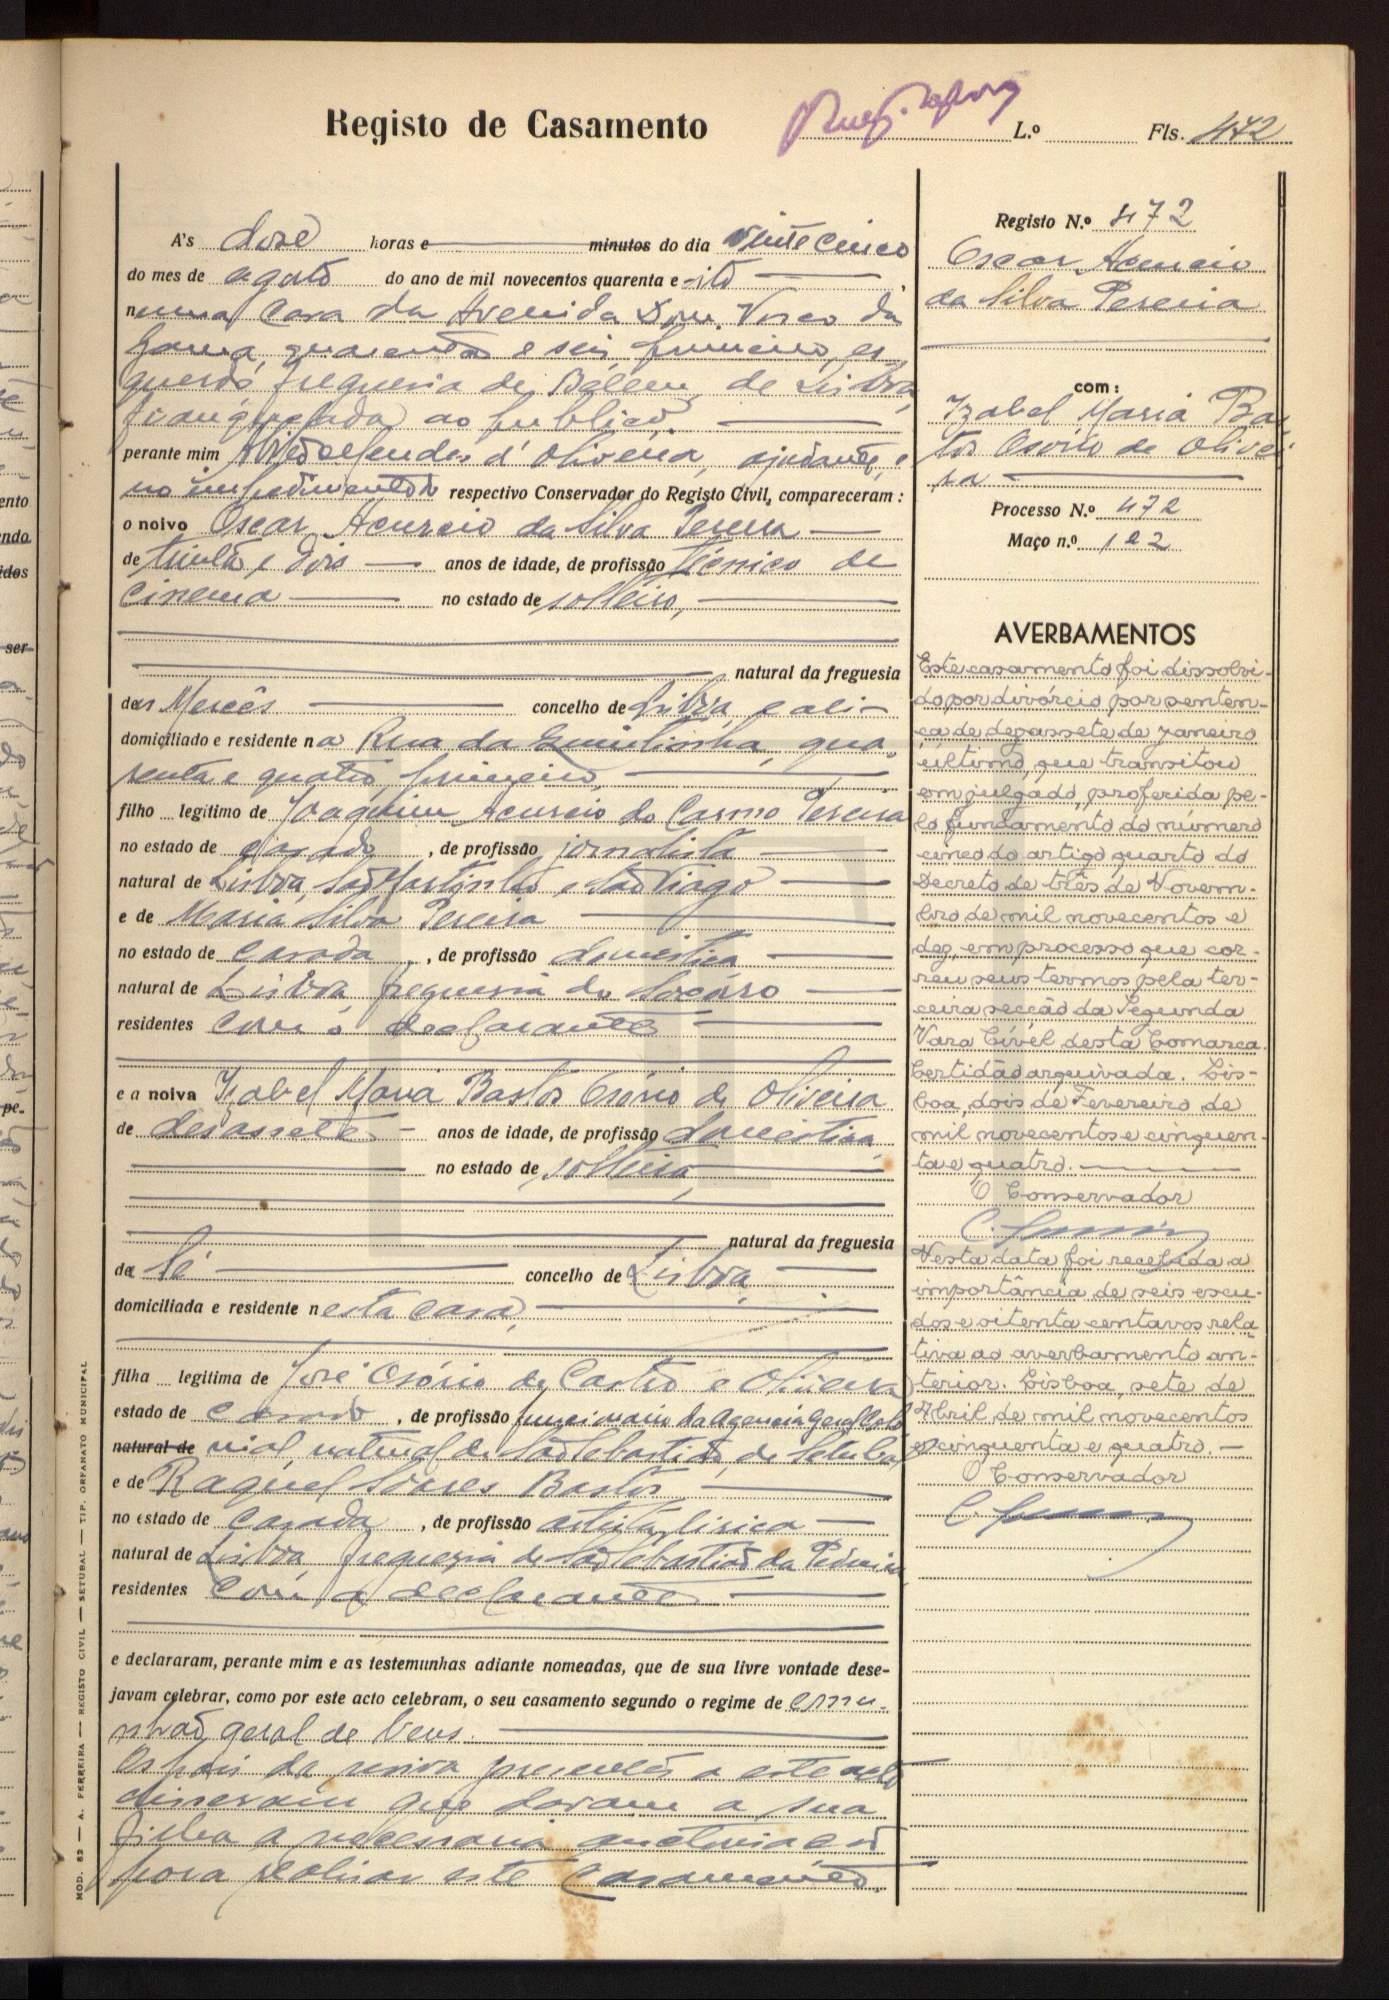 Registo de Casamento
L.º Fls. 472
A's doze horas e minutos do dia vinte cinco
do mes de agosto do ano de mil novecentos quarenta e oito
numa casa da Avenida Dom Vasco da
Gama, quarenta e seis, primeiro, es
querdo, freguesia de Belem, de Lisboa,
franqueada ao publico.
perante mim Alfredo Mendes d'Oliveira, ajudante, e
no impedimento do respectivo Conservador do Registo Civil, compareceram:
o noivo Oscar Acurcio da Silva Pereira
de trinta e dois anos de idade, de profissão técnico de
cinema no estado de solteiro,
natural da freguesia
das Mercês concelho de Lisboa, e ali
domiciliado e residente na Rua da Quintinha, qua
renta e quatro, primeiro,
filho legítimo de Joaquim Acurcio do Carmo Pereira
no estado de casado, de profissão jornalista
natural de Lisboa, São Martinho e São Tiago
e de Maria Silva Pereira
no estado de casada, de profissão domestica
natural de Lisboa freguesia do Socorro
residentes com o declarante
e a noiva Izabel Maria Bastos Osório de Oliveira
de desassete anos de idade, de profissão domestica,
no estado de solteira,
natural da freguesia
da Sé concelho de Lisboa,
domiciliada e residente nesta casa,
filha legítima de José Osório de Castro e Oliveira
estado de casado, de profissão funcionario da Agencia Geral Colo
natural de nial, natural de São Sebastião, de Setubal
e de Raquel Soares Bastos
no estado de casada, de profissão artista lirica
natural de Lisboa freguesia de São Sebastião da Pedreira
residentes com a declarante
e declararam, perante mim e as testemunhas adiante nomeadas, que de sua livre vontade dese-
javam celebrar, como por este acto celebram, o seu casamento segundo o regime de comu-
nhão geral de bens.
Os pais da noiva presentes a este acto
disseram que davam a sua
filha a necessaria autorização
para realisar este casamento.
MOD. 82 — A. FERREIRA — REGISTO CIVIL — SETUBAL — TIP. ORFANATO MUNICIPAL
Registo N.º 472
Oscar Acurcio
da Silva Pereira
com:
Izabel Maria Bas
tos Osório de Olivei
ra
Processo N.º 472
Maço n.º 122
AVERBAMENTOS
Este casamento foi dissolvi-
do por divórcio por senten-
ça de dezassete de Janeiro
último, que transitou
em julgado, proferida pe-
lo fundamento do número
cinco do artigo quarto do
Decreto de três de Novem-
bro de mil novecentos e
dez, em processo que cor-
reu seus termos pela ter-
ceira secção da Segunda
Vara Cível desta Comarca.
Certidão arquivada. Lis-
boa, dois de Fevereiro de
mil novecentos e cinquen-
ta e quatro.
O Conservador
Nesta data foi recebida a
importância de seis escu-
dos e oitenta centavos rela
tiva ao averbamento an-
terior. Lisboa, sete de
Abril de mil novecentos
e cinquenta e quatro.
O Conservador